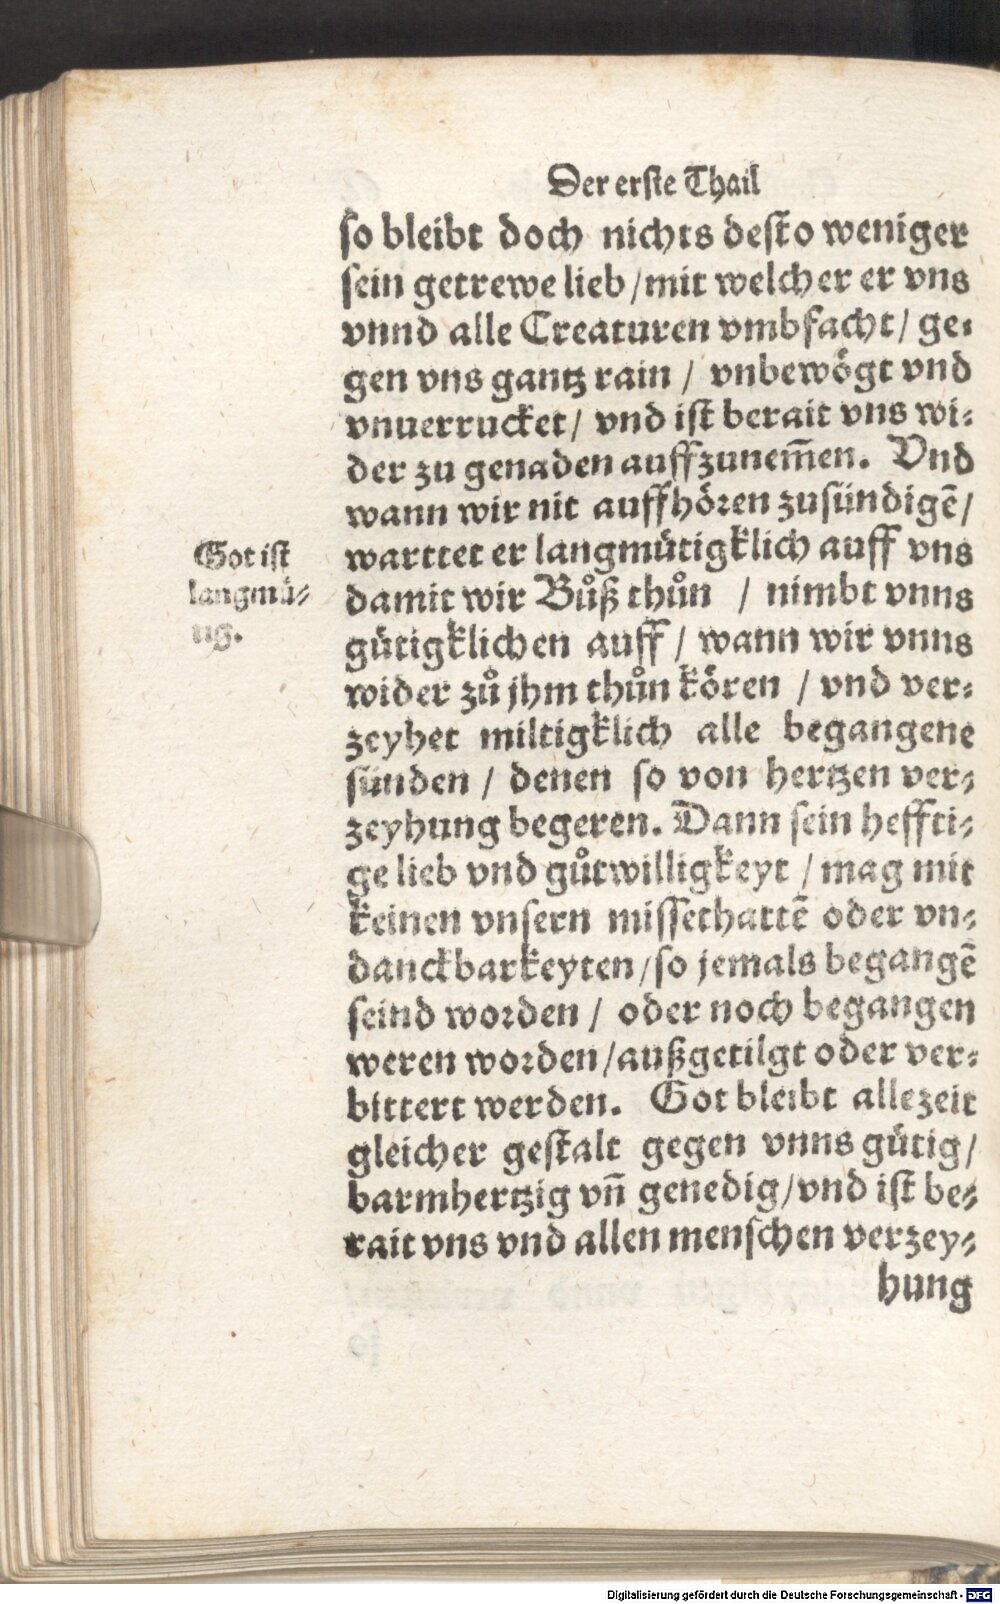 Der erste Thail
so bleibt doch nichts desto weniger
sein getrewe lieb / mit welcher er vns
vnnd alle Creaturen vmbfacht / ge-
gen vns gantz rain / vnbewögt vnd
vnuerrucket / vnd ist berait vns wi-
der zu genaden auffzunem̅en. Vnd
wann wir nit auffhören zusündigē /
warttet er langmütigklich auff vns
damit wir Bůß thůn / nimbt vnns
gütigklichen auff / wann wir vnns
wider zů jhm thůn kören / vnd ver-
zeyhet miltigklich alle begangene
sünden / denen so von hertzen ver-
zeyhung begeren. Dann sein heffti-
ge lieb vnd gůtwilligkeyt / mag mit
keinen vnsern missethattē oder vn-
danckbarkeyten / so jemals begangē
seind worden / oder noch begangen
weren worden / außgetilgt oder ver-
bittert werden. Got bleibt allezeit
gleicher gestalt gegen vnns gütig /
barmhertzig vn̄ genedig / vnd ist be-
rait vns vnd allen menschen verzey-
hung
Got ist
langmü-
tig.
Digitalisierung gefördert durch die Deutsche Forschungsgemeinschaft - DFG